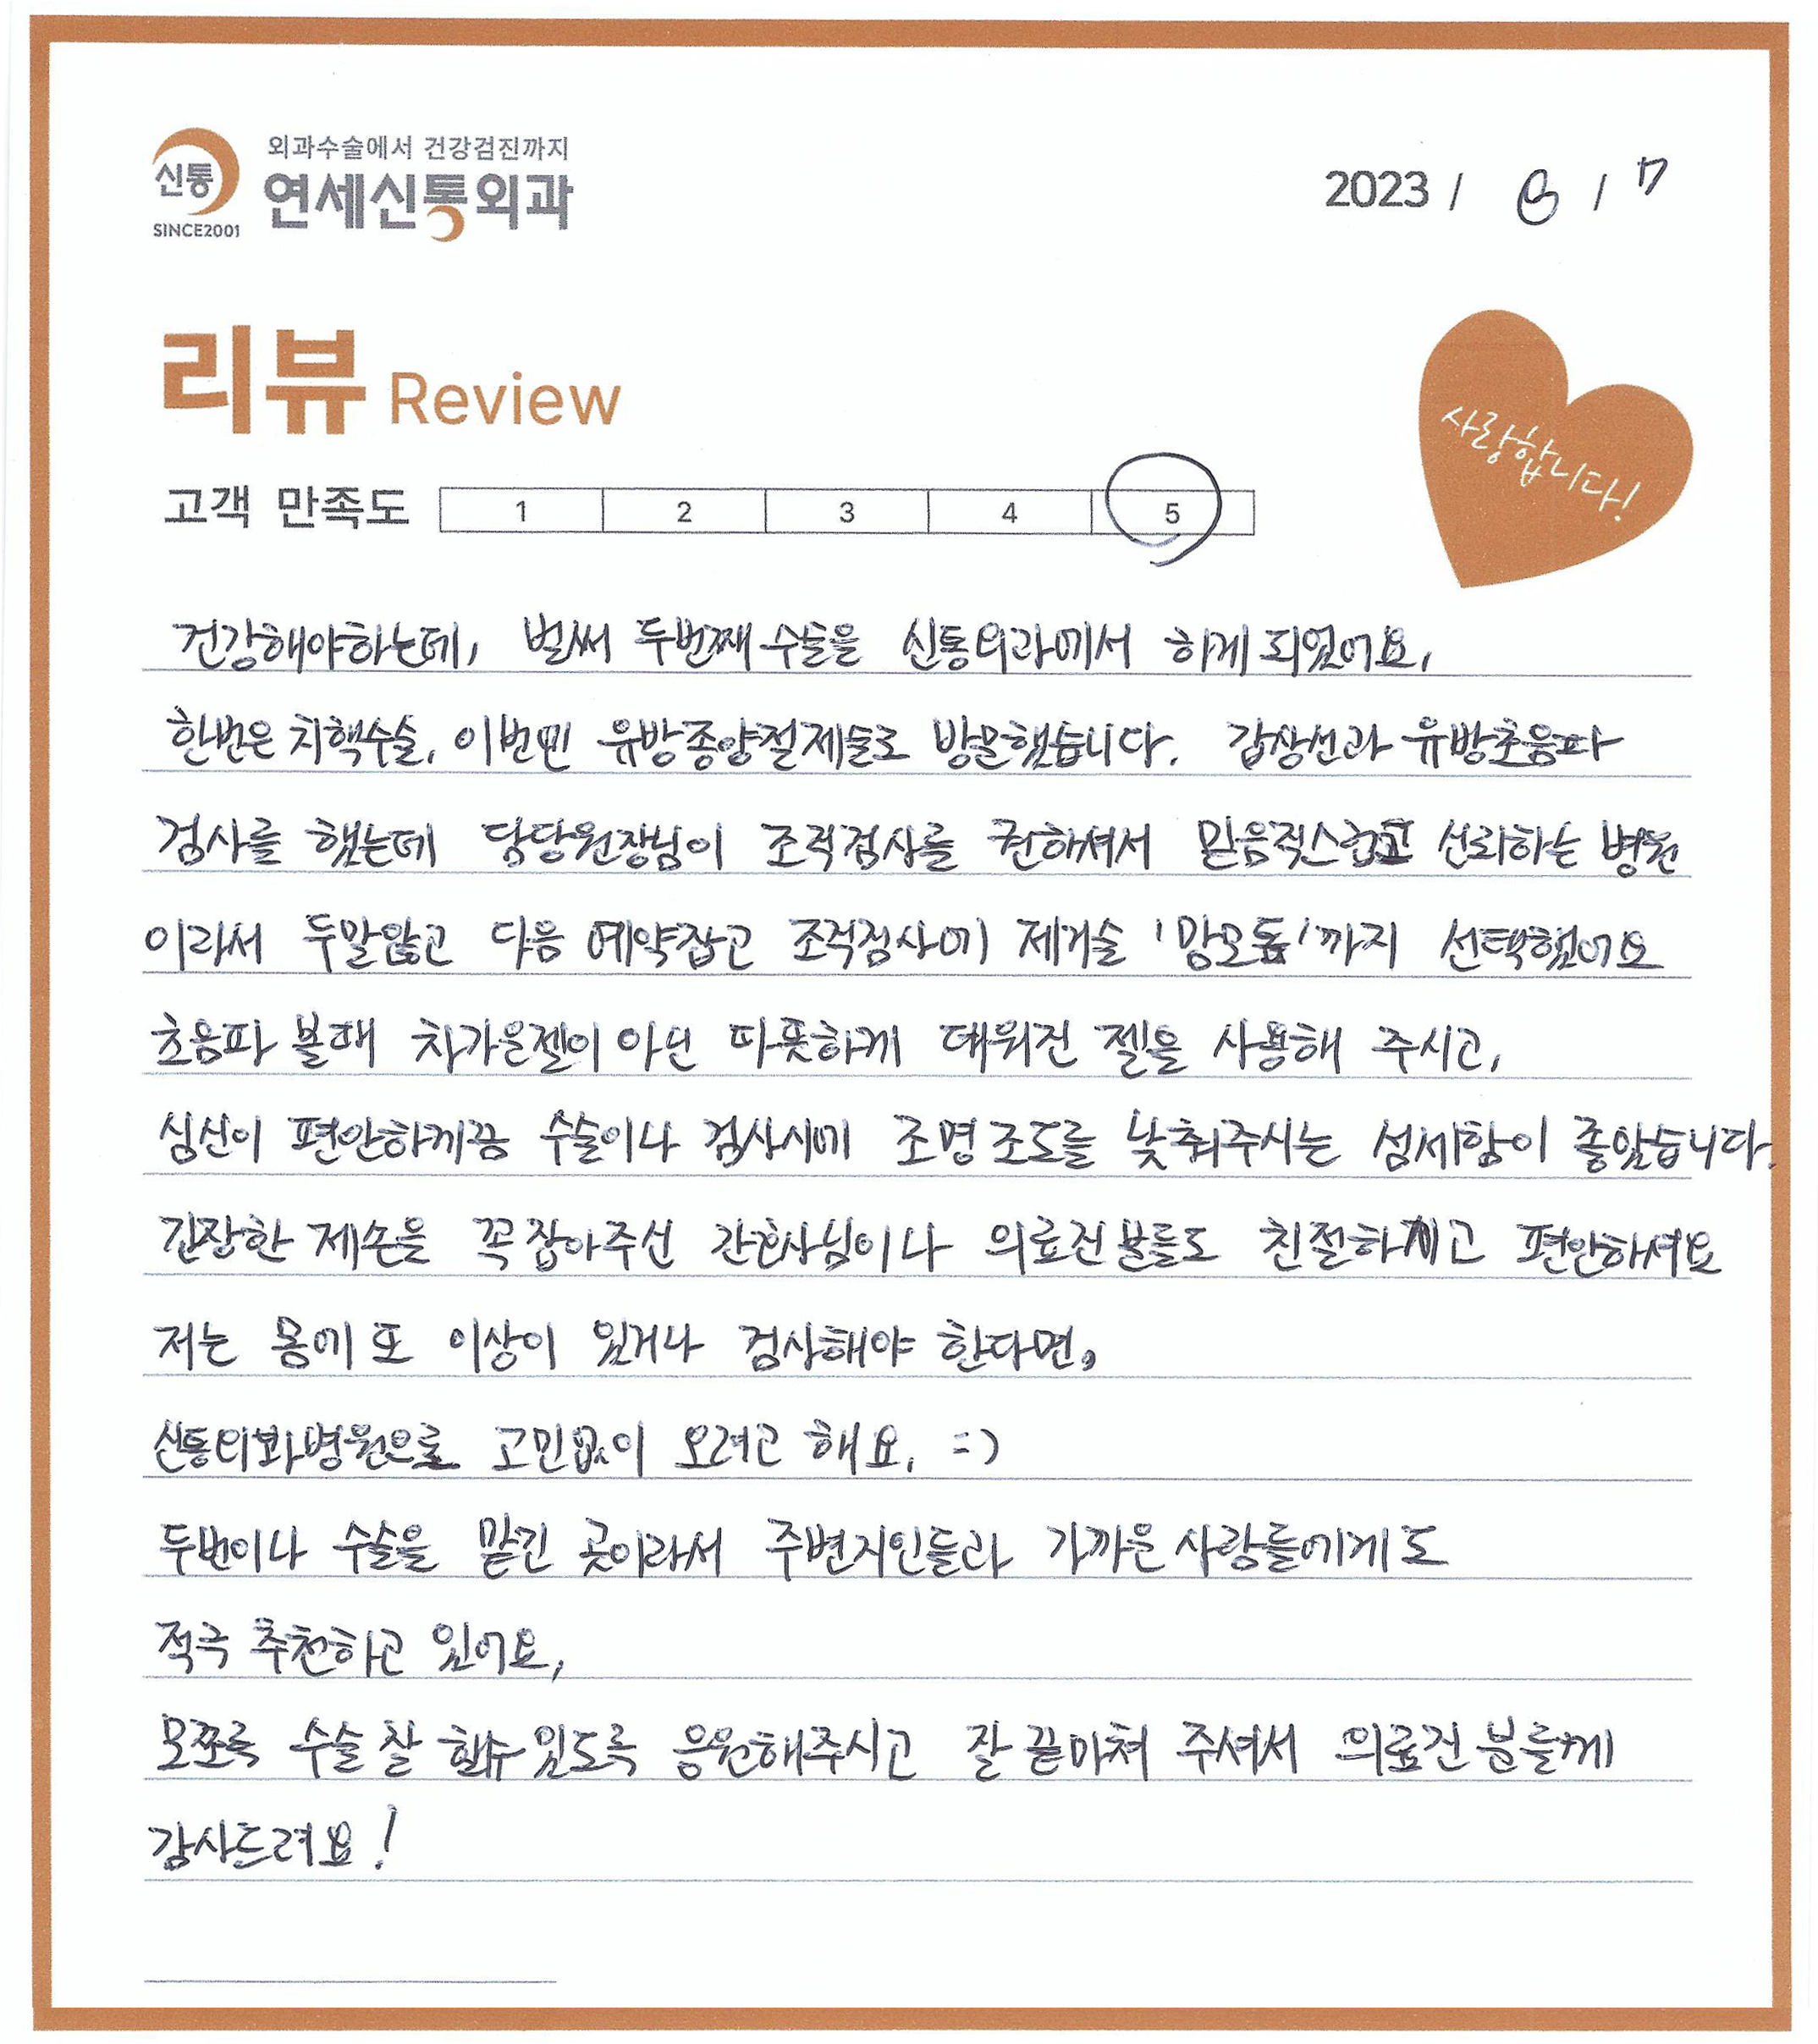 외과수술에서 건강검진까지
신통
연세신통외과
SINCE2001
2023 / 8 / 17
리뷰 Review
사랑합니다!
고객 만족도 1 2 3 4 5
건강해야하는데, 벌써 두번째 수술을 신통외과에서 하게 되었어요,
한번은 치핵수술, 이번엔 유방종양절제술로 방문했습니다. 갑상선과 유방초음파
검사를 했는데 담당원장님이 조직검사를 권하셔서 믿음직스럽고 신뢰하는 병원
이라서 두말않고 다음 예약잡고 조직검사에 제거술 '맘모톰'까지 선택했어요
초음파 볼때 차가운젤이 아닌 따뜻하게 데워진 젤을 사용해 주시고,
심신이 편안하게끔 수술이나 검사시에 조명 조도를 낮춰주시는 섬세함이 좋았습니다.
긴장한 제손을 꼭 잡아주신 간호사님이나 의료진 분들도 친절하시고 편안하셔요
저는 몸에 또 이상이 있거나 검사해야 한다면,
신통외과병원으로 고민없이 오려고 해요, =)
두번이나 수술을 맡긴 곳이라서 주변지인들과 가까운 사람들에게도
적극 추천하고 있어요,
모쪼록 수술 잘 할수 있도록 응원해주시고 잘 끝마쳐 주셔서 의료진 분들께
감사드려요!